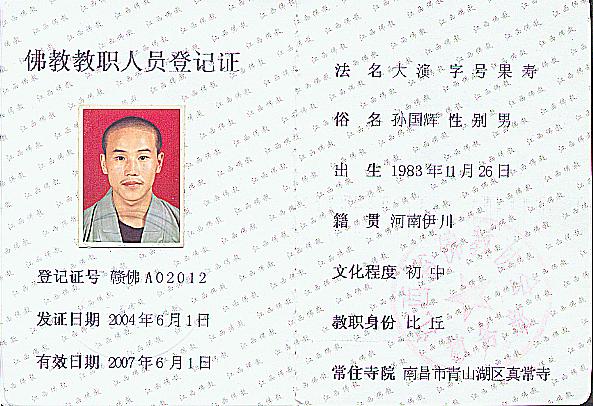 佛教教职人员登记证
登记证号 赣佛A02012
发证日期 2004年6月1日
有效日期 2007年6月1日
法 名 大演 字号 果寿
俗 名 孙国辉 性别 男
出 生 1983年11月26日
籍 贯 河南伊川
文化程度 初中
教职身份 比丘
常住寺院 南昌市青山湖区真常寺
江西佛教